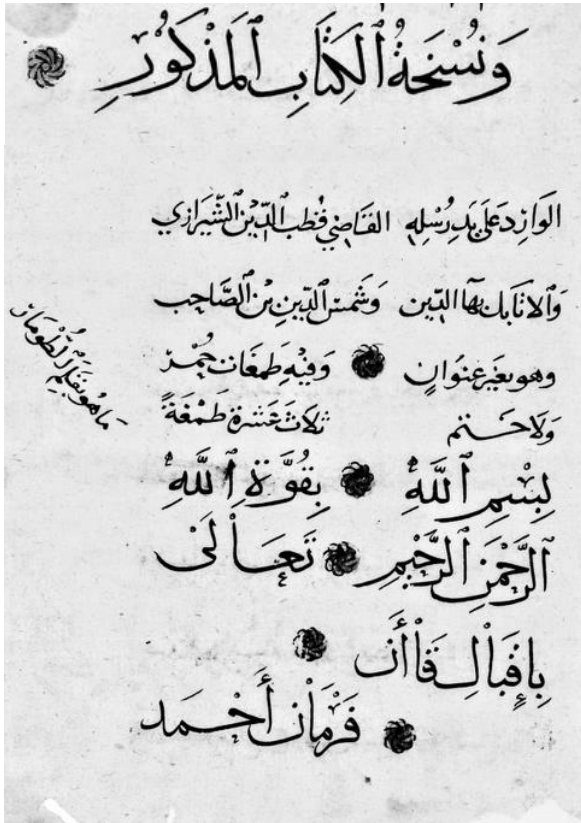 وَنُسْخَةُ ٱلْكِتَابِ ٱلْمَذْكُورِ
الوَارِد عَلَى يَدِ رُسُلِهِ القَاضِي قُطب ٱلدِّين ٱلشِّيرَازِي
وَٱلاتَابك بهَا ٱلدِّين وَشمس ٱلدِّينِ بْن ٱلصَّاحِب
وهو بغَير عنوَانٍ وَفيْهِ طمغَات حُمْر
وَلا ختم ثلاث عَشرة طَمْغَةً
مَا هُو بقَلَم ٱلطُّومَار
بِسْمِ ٱللَّهِ بِقُوَّةِ ٱللَّهِ
ٱلرَّحْمَنِ ٱلرَّحِيْمِ تَعَالَىْ
بِإِقبَالِ قَاأن
فَرْمَان أَحْمَد